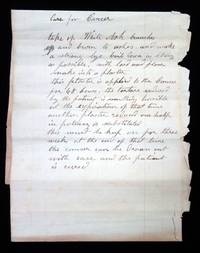 Cure for Cancer
take of White Oak branches
and burn to ashes and make
a strong lye boil down as strong
as possible, with and place
into a plaster
this plaster is applied to the Cancer
for 48 hours, the torture endured
by the patient is horrible
at the expiration of that time
another plaster reduced one half
in potency is substituted
this must be kept on for three
weeks at the end of that time
the cancer can be drawn out
with ease and the patient
is cured